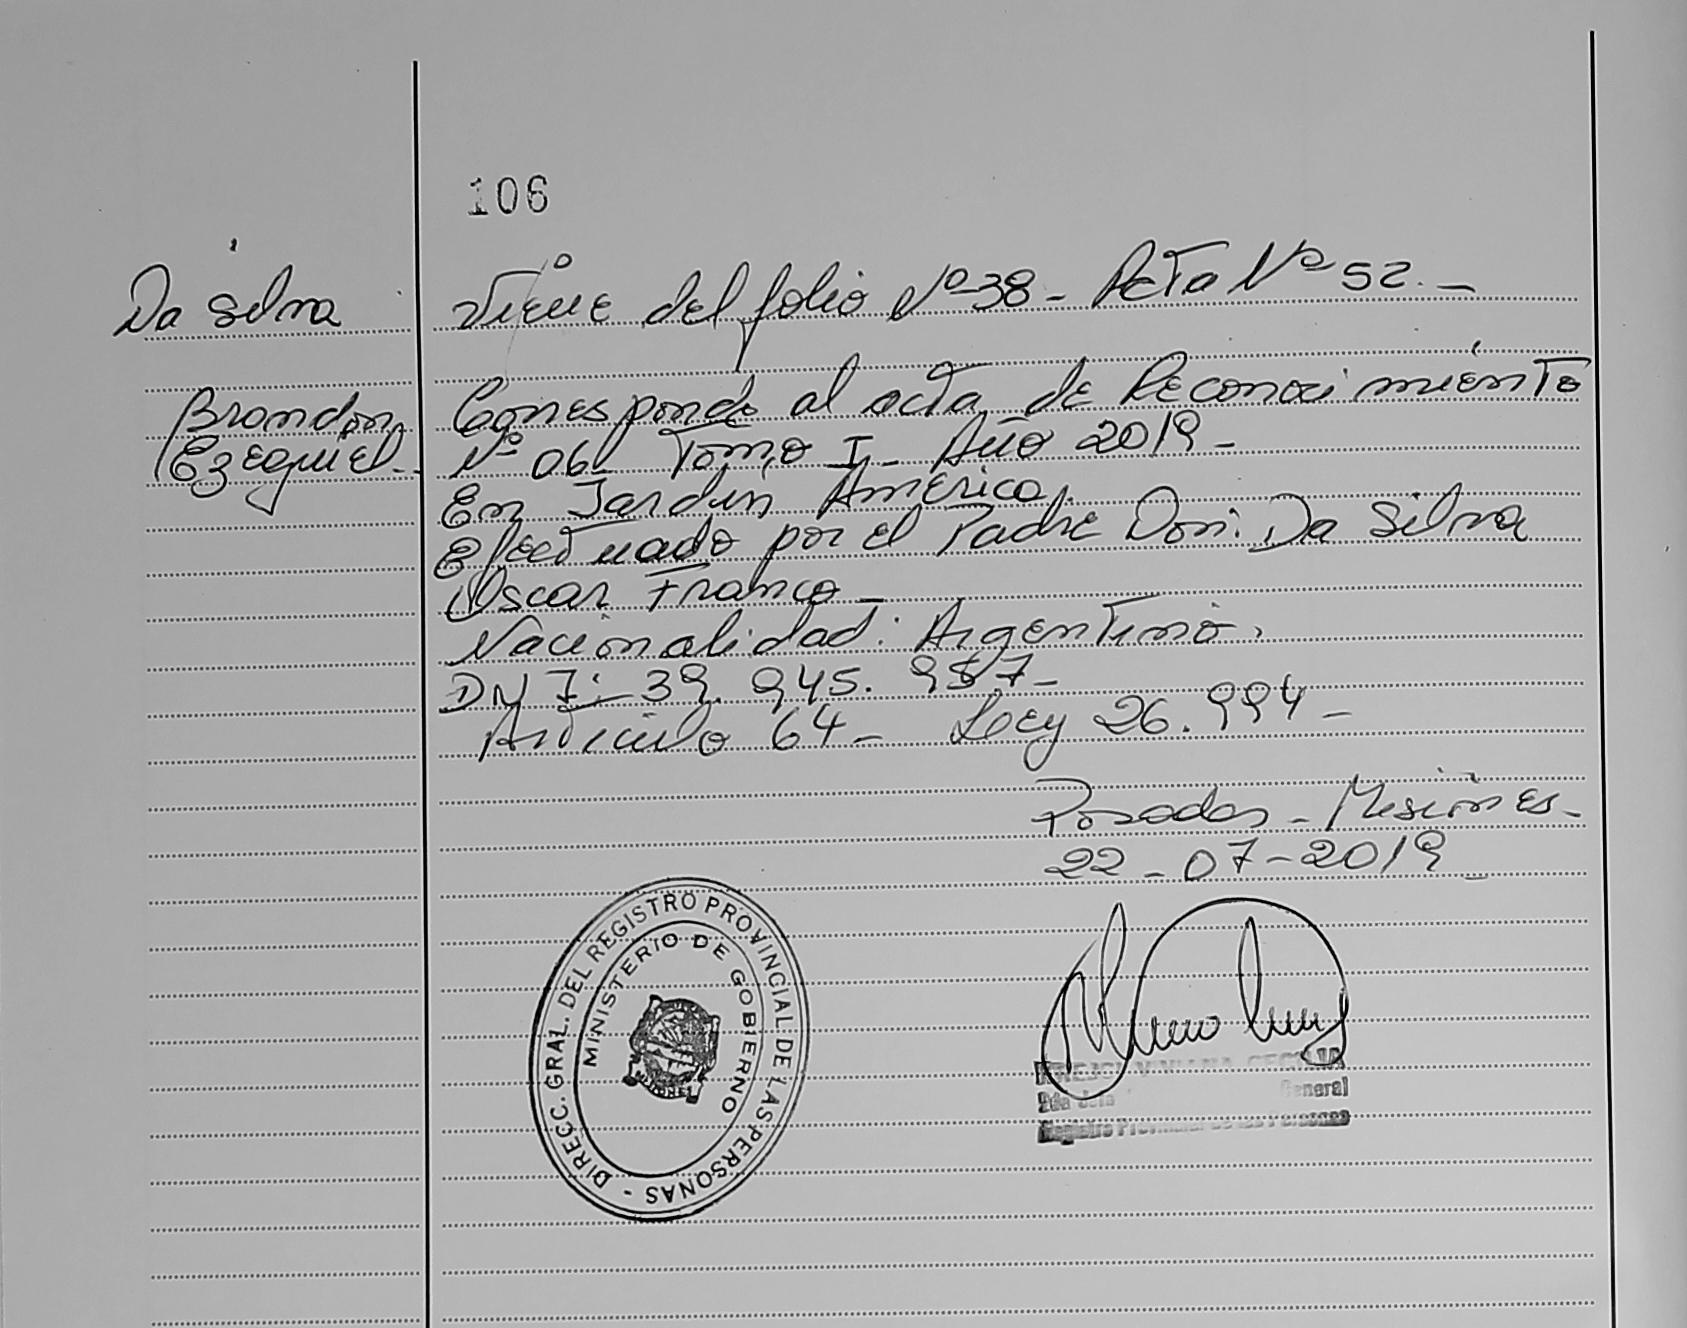 106
Da Silva
Viene del folio Nº 38 - Acta Nº 52. -
Brandon
Ezequiel -
Corresponde al acta de Reconocimiento
Nº 06 - Tomo I - Año 2019 -
En Jardín América.
Efectuado por el Padre Don: Da Silva
Oscar Franco -
Nacionalidad: Argentino.
DNI: - 39. 945. 957 -
Artículo 64 - Ley 26.994 -
Posadas - Misiones -
22 - 07 - 2019 -
DIRECC. GRAL. DEL REGISTRO PROVINCIAL DE LAS PERSONAS -
MINISTERIO DE GOBIERNO
MISIONES
VIVIANA CECILIA
2da Jefa General
Registro Provincial de las Personas